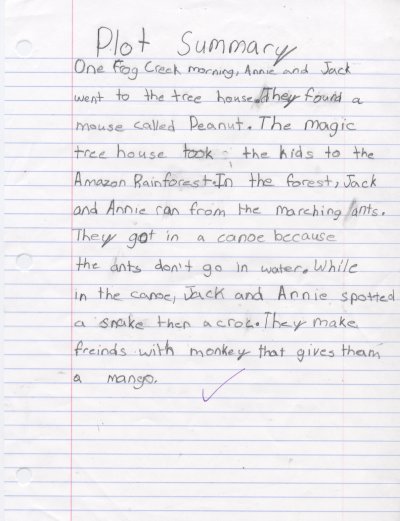 Plot Summary
One Fog Creek morning, Annie and Jack
went to the tree house. They found a
mouse called Peanut. The magic
tree house took the kids to the
Amazon Rainforest. In the forest, Jack
and Annie ran from the marching ants.
They got in a canoe because
the ants don't go in water. While
in the canoe, Jack and Annie spotted
a snake then a croc. They make
freinds with monkey that gives them
a mango.